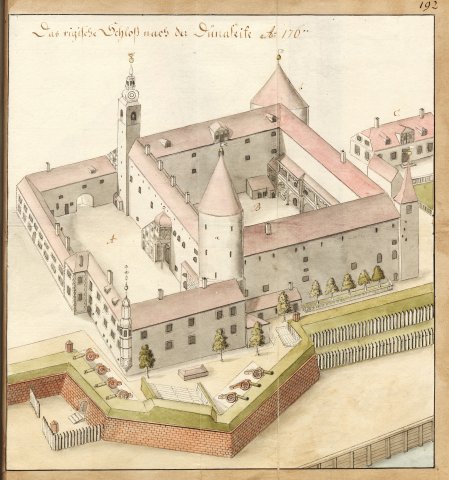 192
Das rigische Schloß nach der Dünaseite Aō 176
A
B
C